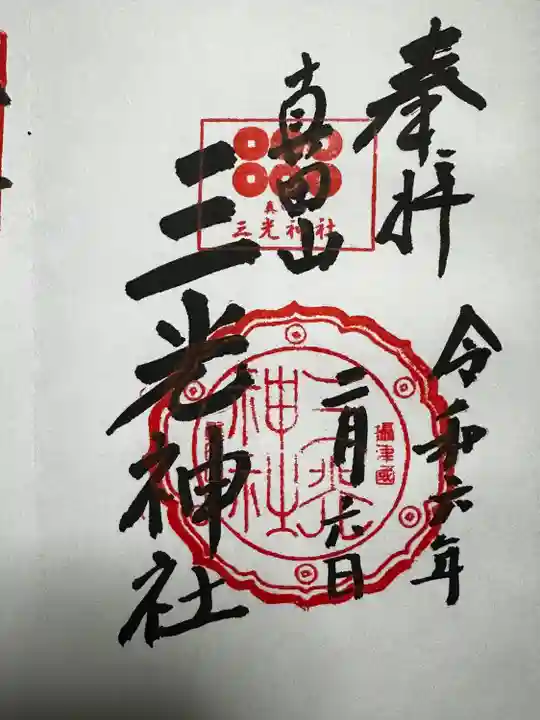 奉拝
令和六年
真田山
二月六日
三光神社
三光神社
攝津國
三光神社